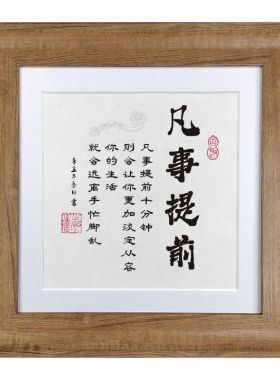 凡事提前
凡事提前十分钟
则会让你更加淡定从容
你的生活
就会远离手忙脚乱